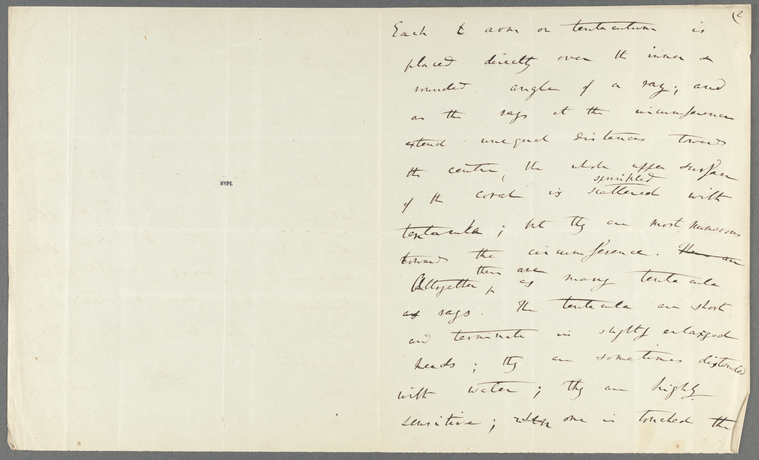 (2
Each t arm or tentaculum is
placed directly over the inner &
rounded angle of a ray; and
as the rays at the circumference
extend unequal distances towards
the centre, the whole upper surface
sprinkled
of the coral is scattered with
tentacula; but they are most numerous
towards the circumference. There are
there are
Altogether, as many tentacula
as rays. The tentacula are short
and terminate in slightly enlarged
heads; they are sometimes distended
with water; they are highly
sensitive; when one is touched the
NYPL